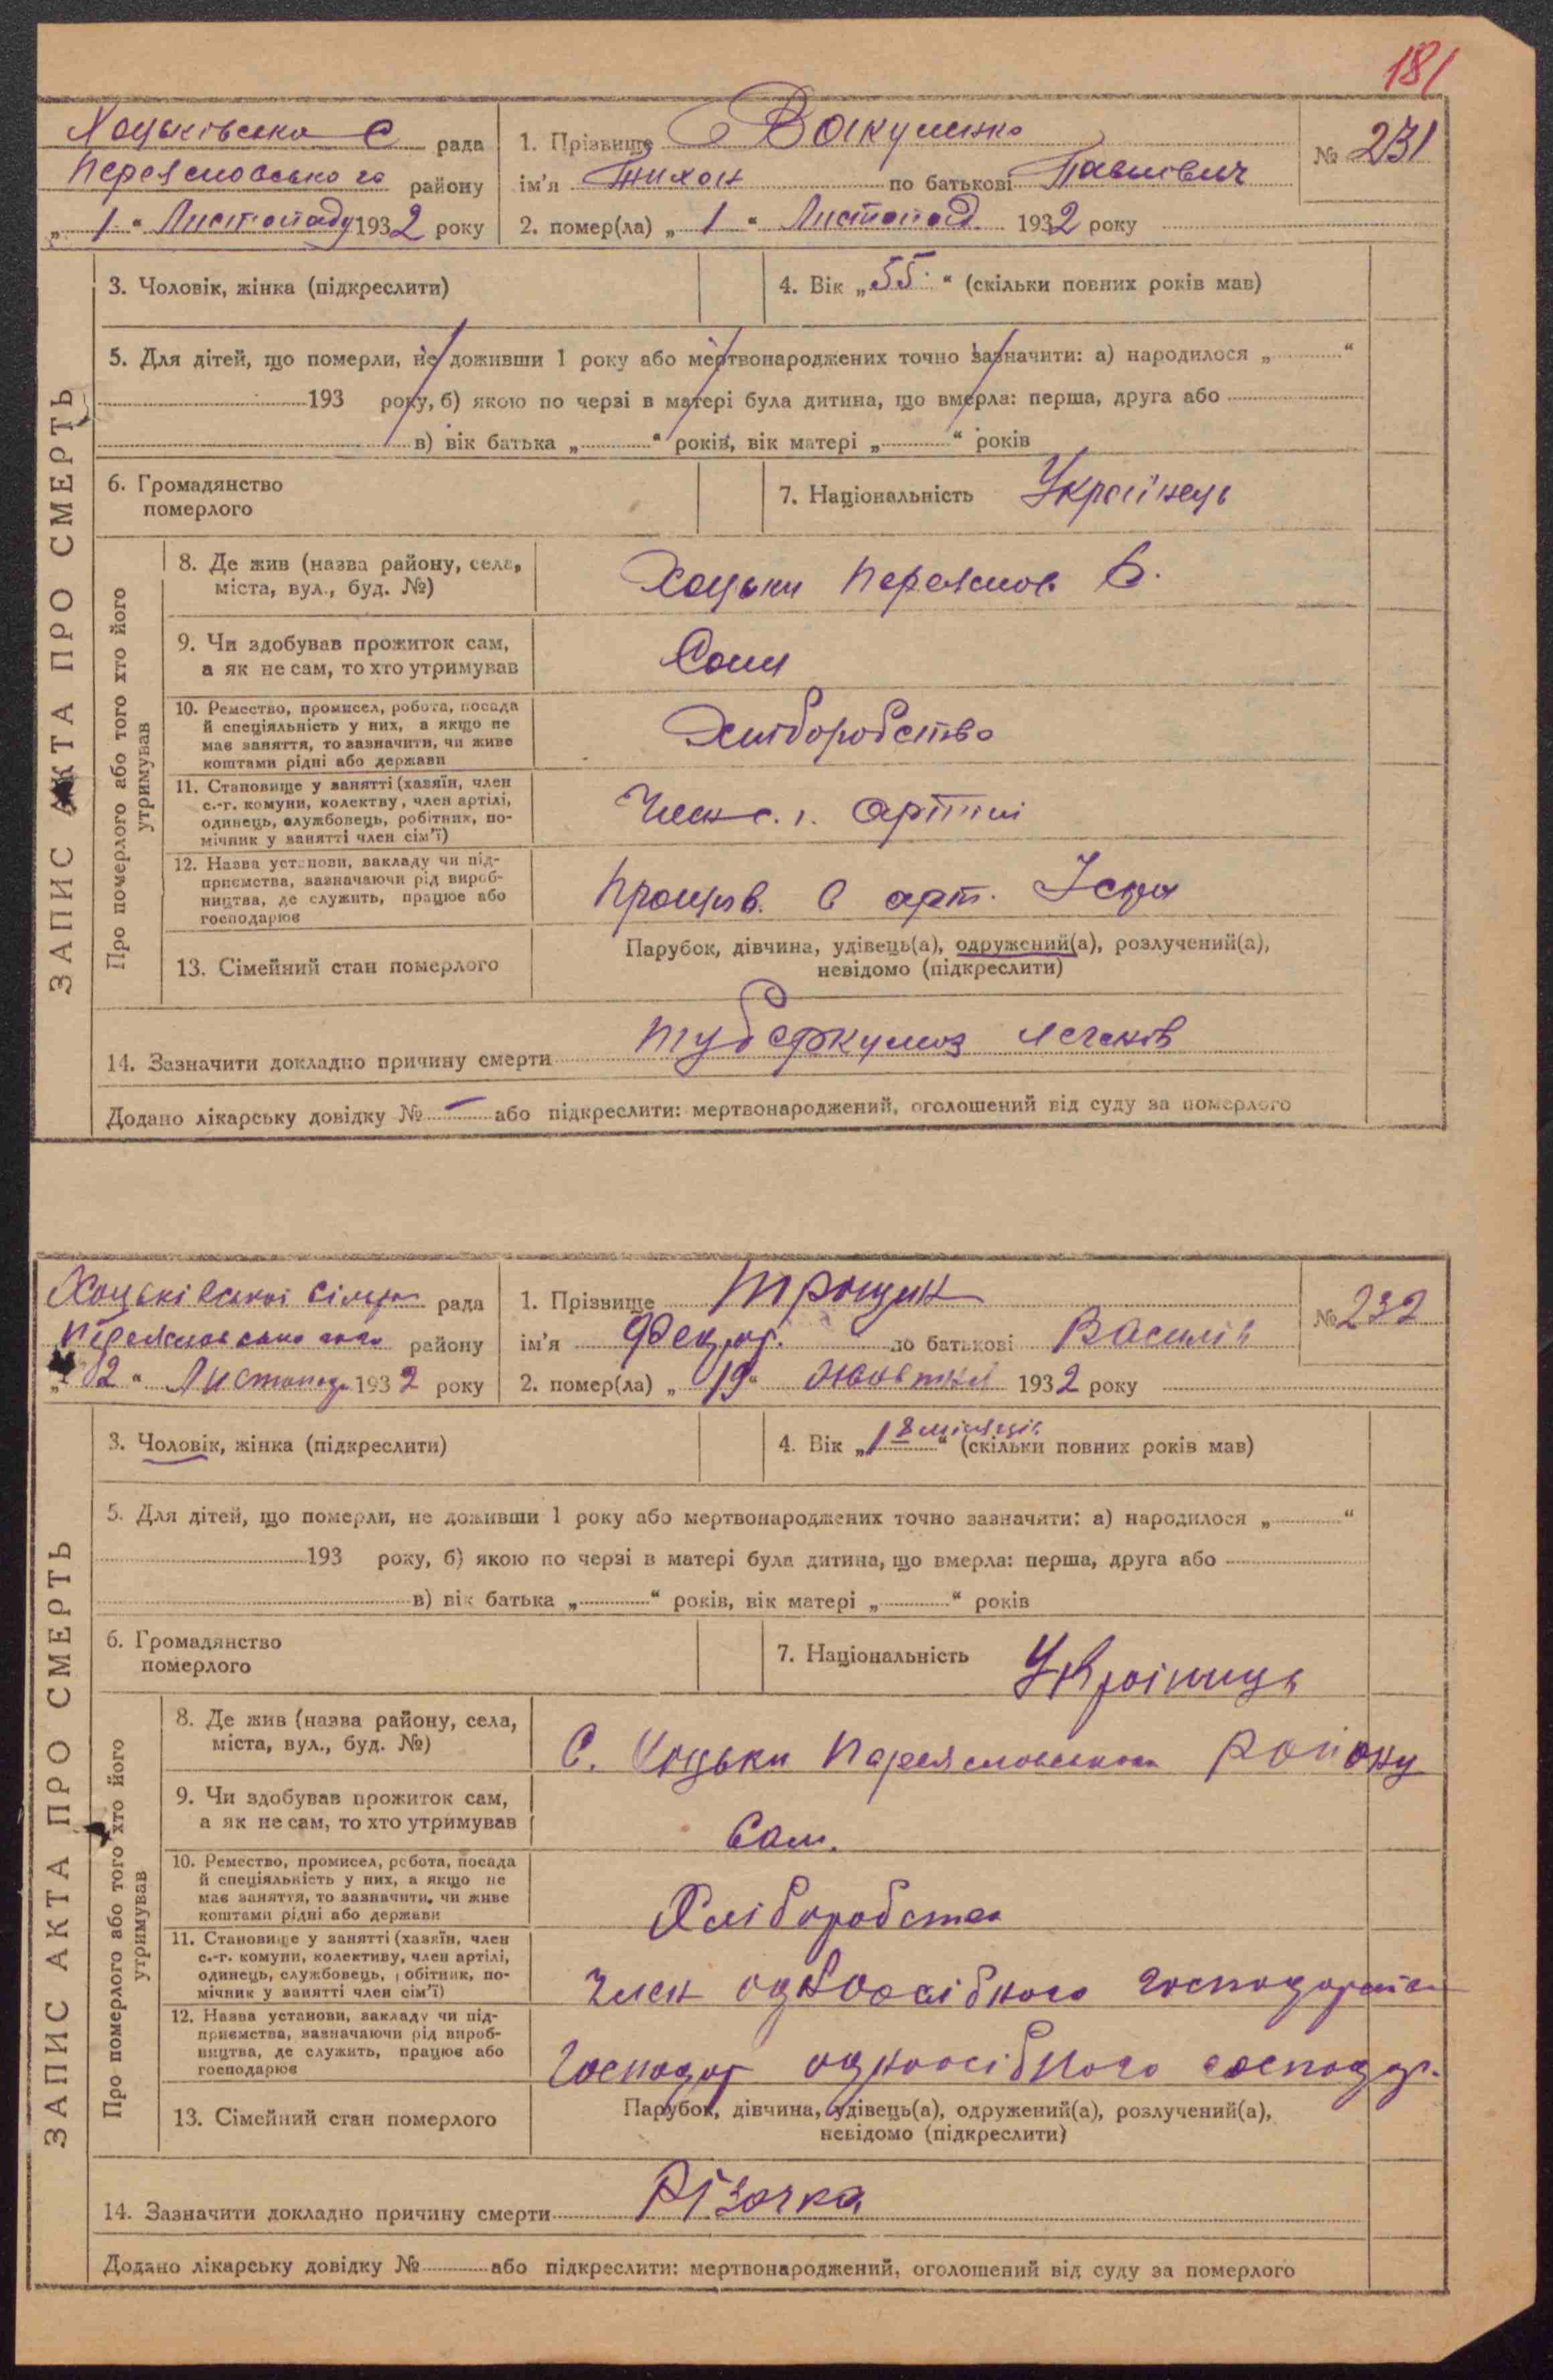 181
Хоцьківська с рада
Переяславського району
„ 1 “ Листопаду 1932 року
1. Прізвище Вакуленко
ім'я Тихон по батькові Павлович
2. помер(ла) „ 1 “ Листопад 1932 року
№ 231
ЗАПИС АКТА ПРО СМЕРТЬ
3. Чоловік, жінка (підкреслити)
4. Вік „ 55 “ (скільки повних років мав)
5. Для дітей, що померли, не доживши 1 року або мертвонароджених точно зазначити: а) народилося „ “
193 року, б) якою по черзі в матері була дитина, що вмерла: перша, друга або
в) вік батька „ “ років, вік матері „ “ років
6. Громадянство
померлого
7. Національність Українець
Про померлого або того хто його
утримував
8. Де жив (назва району, села,
міста, вул., буд. №)
Хоцьки Переяслов. Р.
9. Чи здобував прожиток сам,
а як не сам, то хто утримував
Сам
10. Ремество, промисел, робота, посада
й спеціяльність у них, а якщо не
має заняття, то зазначити, чи живе
коштами рідні або держави
Хліборобство
11. Становище у занятті (хазяїн, член
с.-г. комуни, колектву, член артілі,
одинець, службовець, робітник, по-
мічник у занятті член сім'ї)
Член с. г. артілі
12. Назва установи, закладу чи під-
приємства, зазначаючи рід вироб-
ництва, де служить, працює або
господарює
Працюв. в арт. Іскра
13. Сімейний стан померлого
Парубок, дівчина, удівець(а), одружений(а), розлучений(а),
невідомо (підкреслити)
14. Зазначити докладно причину смерти туберкульоз легенів
Додано лікарську довідку № – або підкреслити: мертвонароджений, оголошений від суду за померлого
Хоцьківської Сільра рада
Переяславського району
„ 2 “ Листопада 1932 року
1. Прізвище Трощин
ім'я Федор. по батькові Василів
2. помер(ла) „ 19 “ жовтня 1932 року
№ 232
ЗАПИС АКТА ПРО СМЕРТЬ
3. Чоловік, жінка (підкреслити)
4. Вік „ 1 8 місяців “ (скільки повних років мав)
5. Для дітей, що померли, не доживши 1 року або мертвонароджених точно зазначити: а) народилося „ “
193 року, б) якою по черзі в матері була дитина, що вмерла: перша, друга або
в) вік батька „ “ років, вік матері „ “ років
6. Громадянство
померлого
7. Національність Українець
Про померлого або того хто його
утримував
8. Де жив (назва району, села,
міста, вул., буд. №)
С. Хоцьки Переяславського Району
9. Чи здобував прожиток сам,
а як не сам, то хто утримував
Сам.
10. Ремество, промисел, робота, посада
й спеціяльність у них, а якщо не
має заняття, то зазначити, чи живе
коштами рідні або держави
Хліборобство
11. Становище у занятті (хазяїн, член
с.-г. комуни, колективу, член артілі,
одинець, службовець, робітник, по-
мічник у занятті член сім'ї)
Член одноосібного господарства
12. Назва установи, закладу чи під-
приємства, зазначаючи рід вироб-
ництва, де служить, працює або
господарює
Господар одноосібного господар.
13. Сімейний стан померлого
Парубок, дівчина, удівець(а), одружений(а), розлучений(а),
невідомо (підкреслити)
14. Зазначити докладно причину смерти Різачка
Додано лікарську довідку № або підкреслити: мертвонароджений, оголошений від суду за померлого